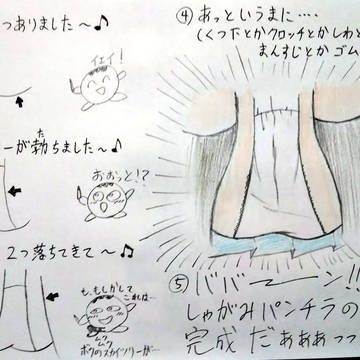 つありました〜♪
イエイ!
ーが勃ちました〜♪
た
おおっと!?
2つ落ちてきて〜♪
も、もしかして
これは…
ムクムク
ボクのスカイツリーが…
④あっというまに‥‥
(くつ下とかクロッチとかしわと
まんすじとかゴム
⑤ババーーン!!
しゃがみパンチラの
完成だぁぁぁっっ